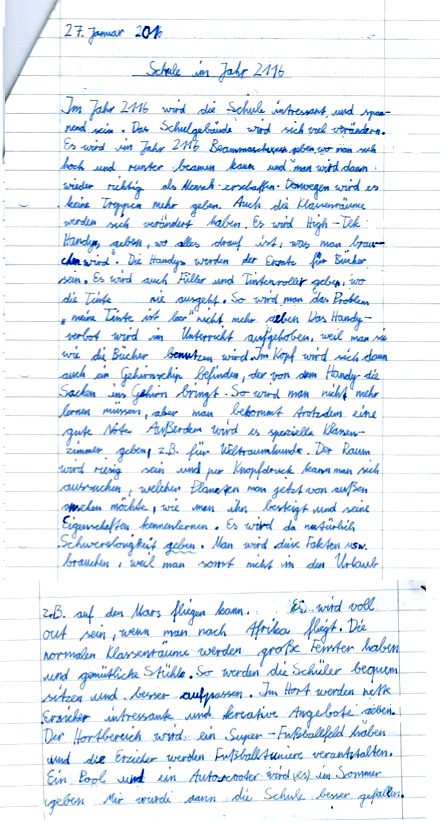 27. Januar 2016
Schule im Jahr 2116
Im Jahr 2116 wird die Schule intressant und span-
nend sein. Das Schulgebäude wird sich viel verändern.
Es wird im Jahr 2116 Beammaschienen geben, wo man sich
hoch und runter beamen kann und man wird dann
wieder richtig als Mensch erschaffen. Deswegen wird es
keine Treppen mehr geben. Auch die Klassenräume
werden sich verändert haben. Es wird High-Tek
Handys geben, wo alles drauf ist, was man brau-
chen wird. Die Handys werden der Ersatz für Bücher
sein. Es wird auch Füller und Tintenroller geben, wo
die Tinte nie ausgeht. So wird man das Problem
„meine Tinte ist leer" nicht mehr geben. Das Handy-
verbot wird im Unterricht aufgehoben, weil man sie
wie die Bücher benutzen wird. Im Kopf wird sich dann
auch ein Gehirnchip befinden, der von dem Handy die
Sachen ins Gehirn bringt. So wird man nicht mehr
lernen müssen, aber man bekommt trotzdem eine
gute Note. Außerdem wird es spezielle Klassen-
zimmer geben, z.B. für Weltraumkunde. Der Raum
wird riesig sein und per Knopfdruck kann man sich
aussuchen, welchen Planeten man jetzt von außen
ansehen möchte, wie man ihn besteigt und seine
Eigenschaften kennenlernen. Es wird da natürlich
Schwerelosigkeit geben. Man wird diese Fakten usw.
brauchen, weil man sonst nicht in den Urlaub
z.B. auf den Mars fliegen kann. Es wird voll
out sein, wenn man nach Afrika fliegt. Die
normalen Klassenräume werden große Fenster haben
und gemütliche Stühle. So werden die Schüler bequem
sitzen und besser aufpassen. Im Hort werden nette
Erzieher intressante und kreative Angebote geben.
Der Hortbereich wird ein Super-Fußballfeld haben
und die Erzieher werden Fußballtuniere veranstalten.
Ein Pool und ein Autoscooter wird (es) im Sommer
geben. Mir würde dann die Schule besser gefallen.